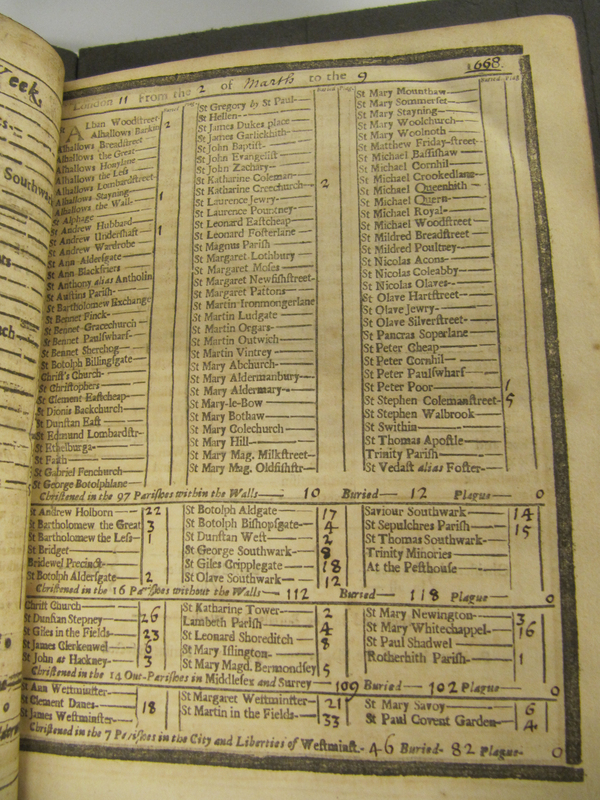 eek,
Southwark
London 11 From the 2 of March to the 9 1668.
Buried Plag
Buried Plag
Buried Plag
St Alban Woodstreet
Alhallows Barkin 2
Alhallows Breadstreet
Alhallows the Great
Alhallows Honyline
Alhallows the Less
Alhallows Lombardstreet
Alhallows Stayning
Alhallows the Wall 1
St Alphage
St Andrew Hubbard
St Andrew Undershaft 1
St Andrew Wardrobe
St Ann Aldersgate
St Ann Blackfriers
St Anthony alias Antholin
St Austins Parish
St Bartholomew Exchange
St Bennet Finck
St Bennet Gracechurch
St Bennet Paulswharf
St Bennet Sherehog
St Botolph Billingsgate
Christ's Church
St Christophers
St Clement Eastcheap
St Dionis Backchurch
St Dunstan East
St Edmund Lombardstr
St Ethelburga
St Faith
St Gabriel Fenchurch
St George Botolphlane
St Gregory by St Paul
St Hellen
St James Dukes place
St James Garlickhith
St John Baptist
St John Evangelist
St John Zachary
St Katharine Coleman
St Katharine Creechurch 2
St Laurence Jewry
St Laurence Pountney
St Leonard Eastcheap
St Leonard Fosterlane
St Magnus Parish
St Margaret Lothbury
St Margaret Moses
St Margaret Newfishstreet
St Margaret Pattons
St Martin Ironmongerlane
St Martin Ludgate
St Martin Orgars
St Martin Outwich
St Martin Vintrey
St Mary Abchurch
St Mary Aldermanbury
St Mary Aldermary
St Mary-le-Bow
St Mary Bothaw
St Mary Colechurch
St Mary Hill
St Mary Mag. Milkstreet
St Mary Mag. Oldfishstr
St Mary Mounthaw
St Mary Sommerset
St Mary Stayning
St Mary Woolchurch
St Mary Woolnoth
St Matthew Friday-street
St Michael Bassishaw
St Michael Cornhil
St Michael Crookedlane
St Michael Queenhith
St Michael Quern
St Michael Royal
St Michael Woodstreet
St Mildred Breadstreet
St Mildred Poultney
St Nicolas Acons
St Nicolas Coleabby
St Nicolas Olaves
St Olave Hartstreet
St Olave Jewry
St Olave Silverstreet
St Pancras Soperlane
St Peter Cheap
St Peter Cornhil
St Peter Paulswharf
St Peter Poor 1
St Stephen Colemanstreet 5
St Stephen Walbrook
St Swithin
St Thomas Apostle
Trinity Parish
St Vedast alias Foster
Christned in the 97 Parishes within the Walls 10 Buried 12 Plague 0
St Andrew Holborn 22
St Bartholomew the Great 3
St Bartholomew the Less 1
St Bridget
Bridewel Precinct
St Botolph Aldersgate 2
St Botolph Aldgate 17
St Botolph Bishopsgate 4
St Dunstan West 2
St George Southwark 8
St Giles Cripplegate 18
St Olave Southwark 12
Saviour Southwark 14
St Sepulchres Parish 15
St Thomas Southwark
Trinity Minories
At the Pesthouse
Christned in the 16 Parishes without the Walls 112 Buried 118 Plague 0
Christ Church
St Dunstan Stepney 26
St Giles in the Fields 23
St James Clerkenwel 6
St John at Hackney 3
St Katharine Tower 2
Lambeth Parish 4
St Leonard Shoreditch 8
St Mary Islington
St Mary Magd. Bermondsey 5
St Mary Newington 3
St Mary Whitechappel 16
St Paul Shadwel
Rotherhith Parish 1
Christned in the 14 Out-Parishes in Middlesex and Surrey 109 Buried 102 Plague 0
St Ann Westminster
St Clement Danes 18
St James Westminster
St Margaret Westminster 21
St Martin in the Fields 33
St Mary Savoy 6
St Paul Covent Garden 4
Christned in the 7 Parishes in the City and Liberties of Westminst. 46 Buried 82 Plague 0